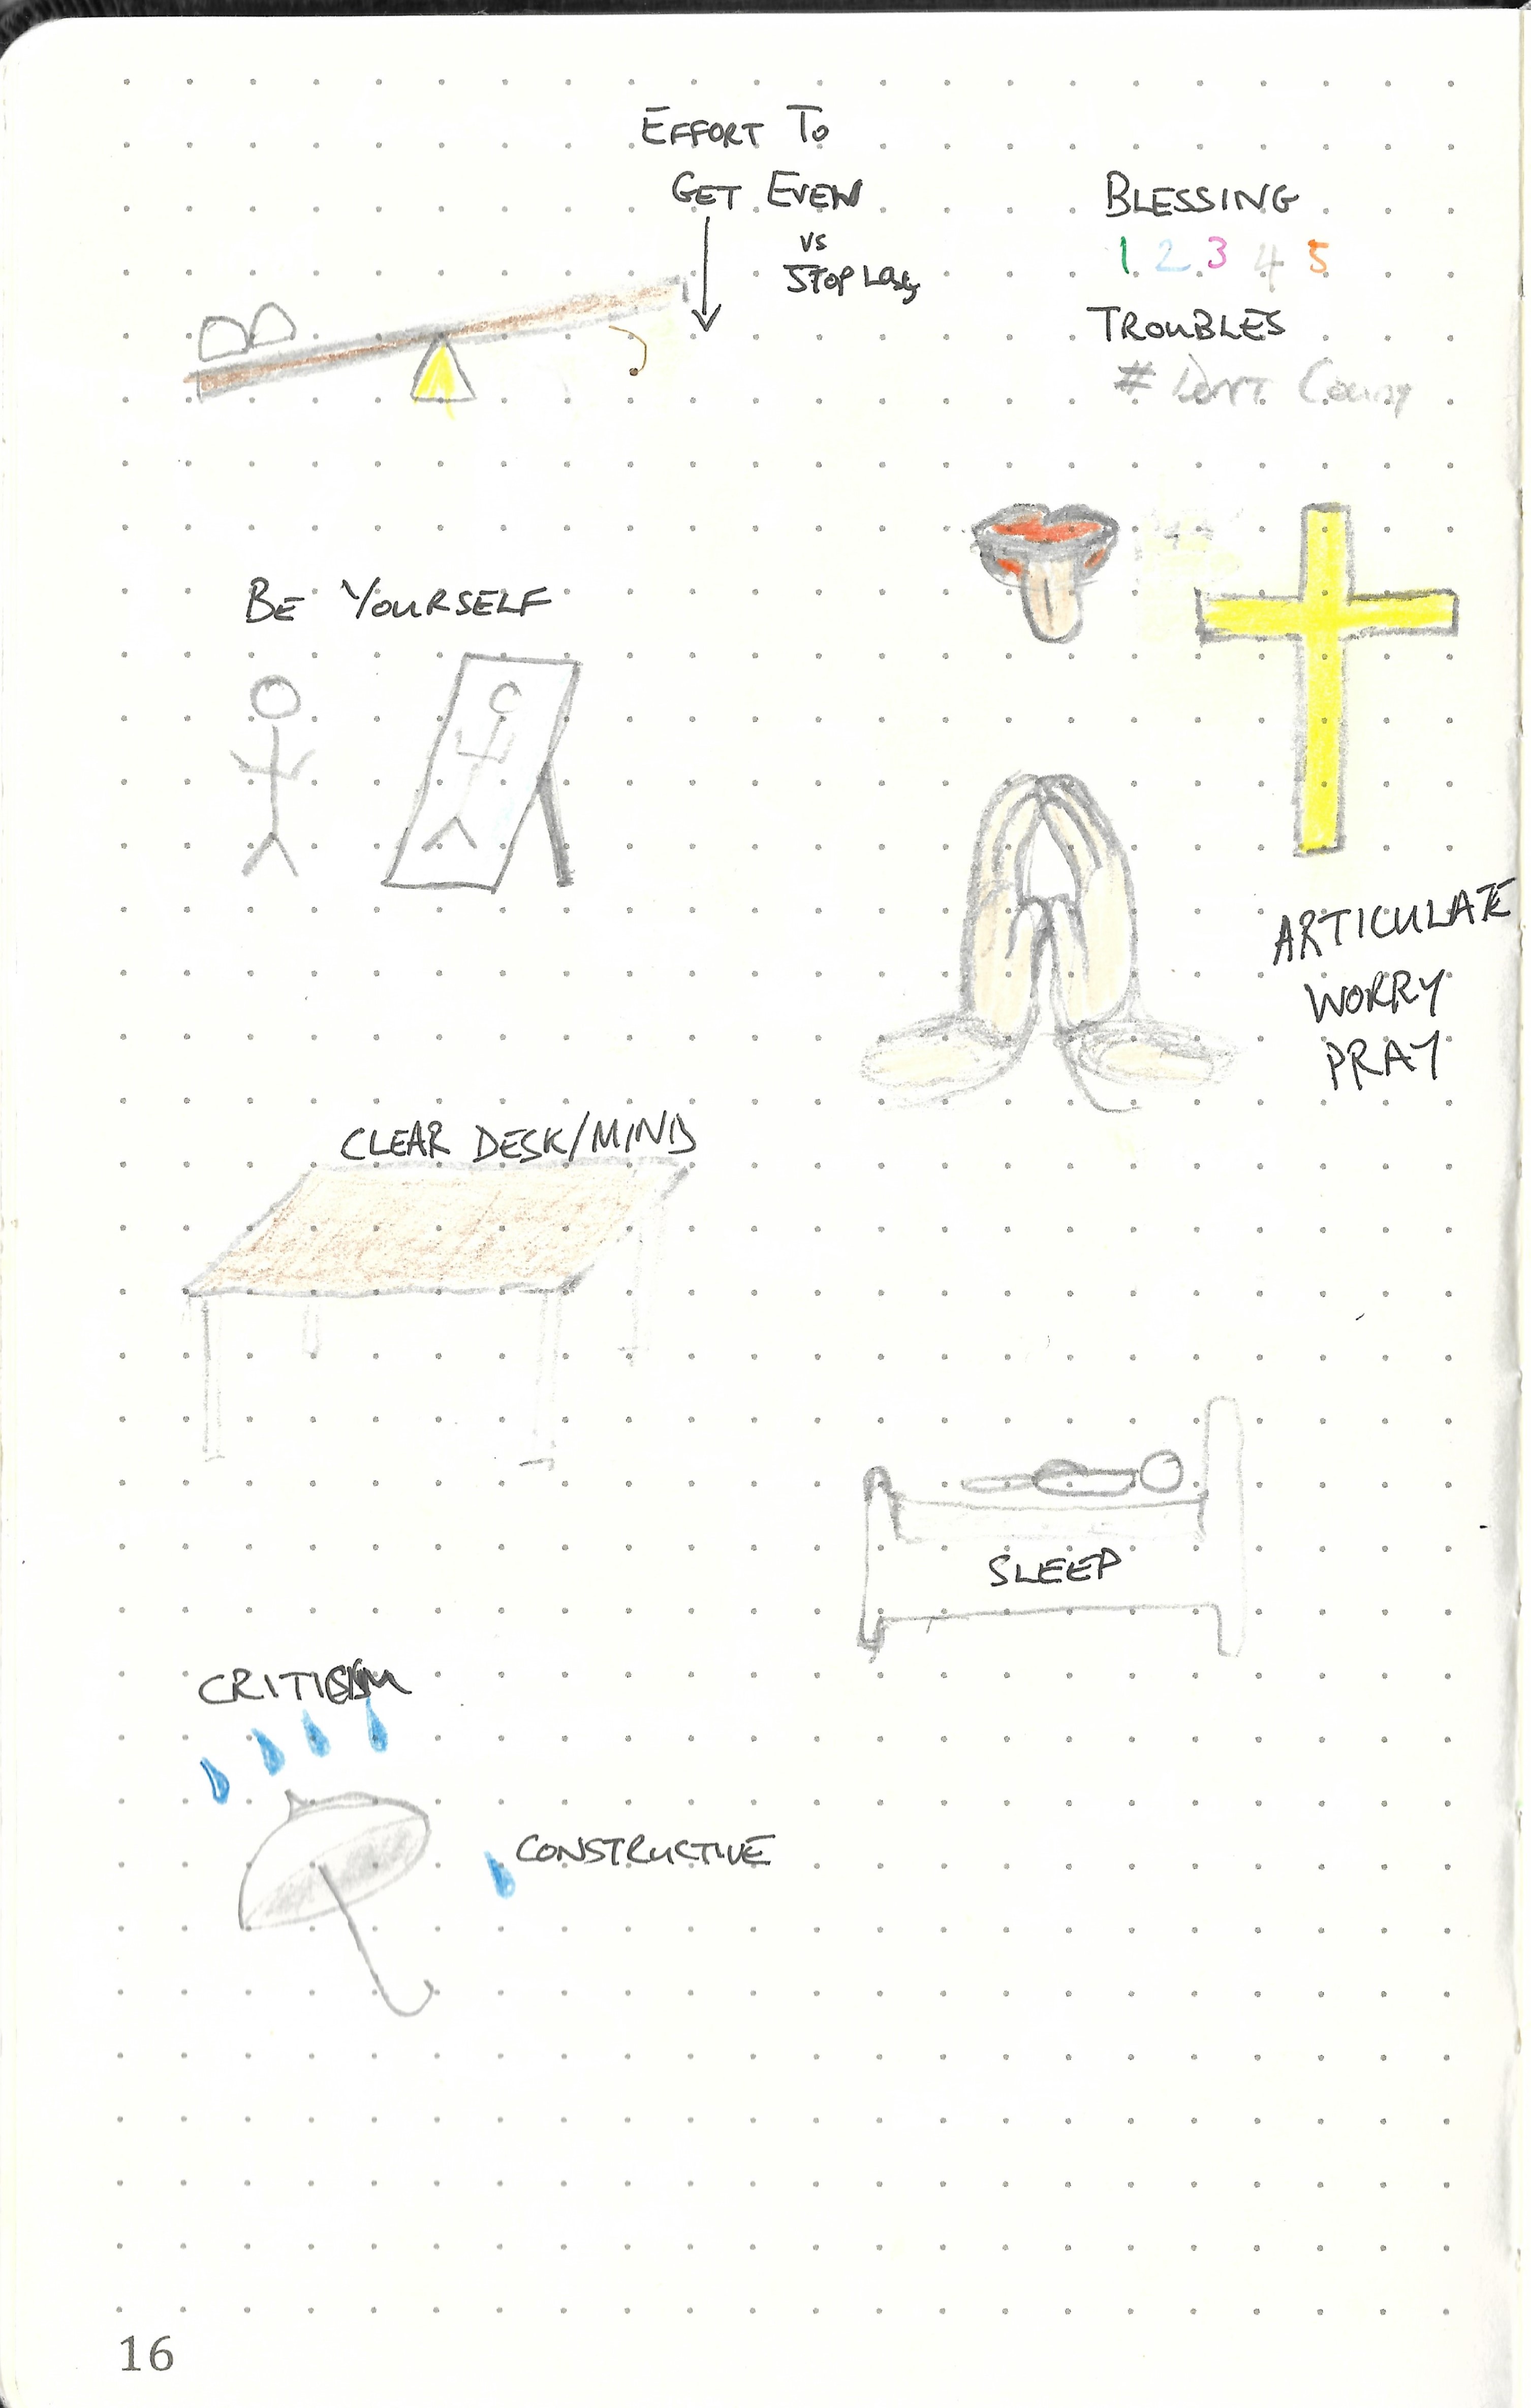 EFFORT TO
GET EVEN
vs
STOP Loss
BLESSING
1 2 3 4 5
TROUBLES
# Don't Count
BE YOURSELF
ARTICULATE
WORRY
PRAY
CLEAR DESK/MIND
SLEEP
CRITICISM
CONSTRUCTIVE
16